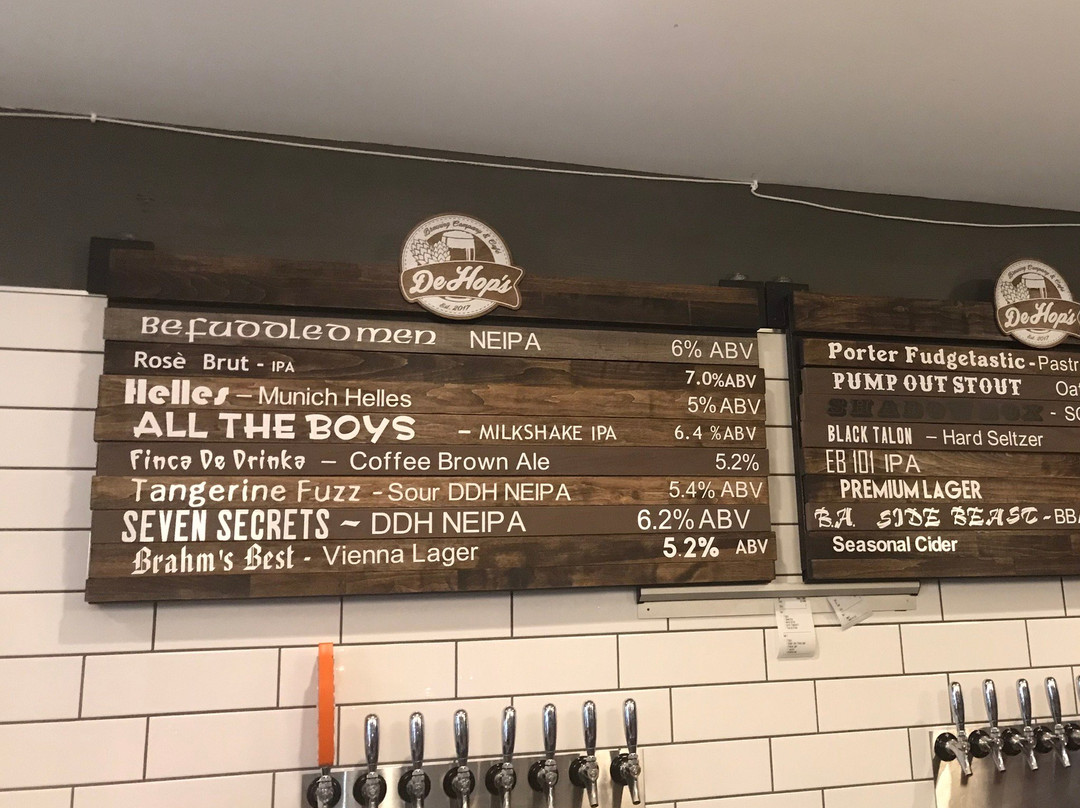 Brewing Company & Café
DeHop's
Est. 2017
Befuddledmen NEIPA 6% ABV
Rosè Brut - IPA 7.0%ABV
Helles – Munich Helles 5% ABV
ALL THE BOYS – MILKSHAKE IPA 6.4 %ABV
Finca De Drinka – Coffee Brown Ale 5.2%
Tangerine Fuzz - Sour DDH NEIPA 5.4% ABV
SEVEN SECRETS ~ DDH NEIPA 6.2% ABV
Brahm's Best - Vienna Lager 5.2% ABV
Brewing Company & Café
DeHop's
Est. 2017
Porter Fudgetastic - Pastr
PUMP OUT STOUT Oat
SHADOWBOX - SO
BLACK TALON – Hard Seltzer
EB 101 IPA
PREMIUM LAGER
B.A. SIDE BEAST - BBA
Seasonal Cider